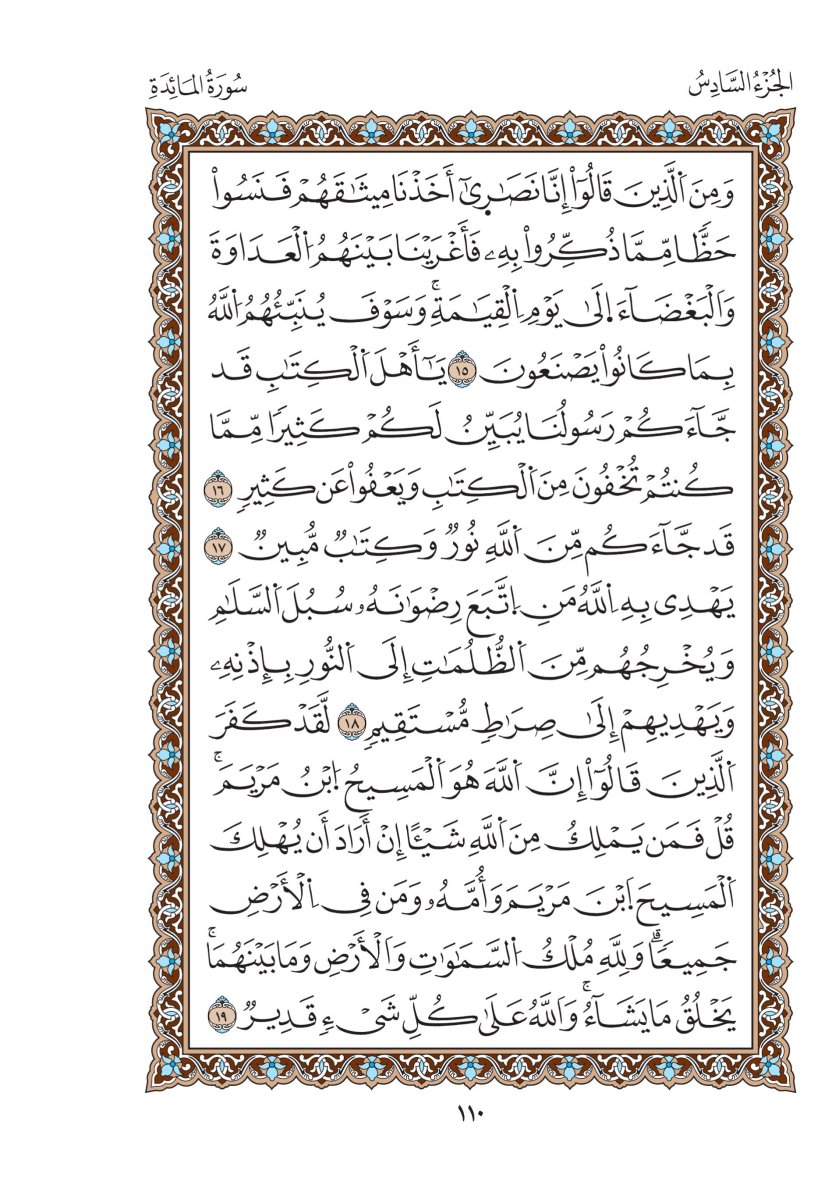 الجُزْءُ السَّادِسُ
سُورَةُ المَائِدَةِ
وَمِنَ اَ۬لَّذِينَ قَالُوٓاْ إِنَّا نَصَٰر۪ىٰٓ أَخَذْنَا مِيثَٰقَهُمْ فَنَسُواْ
حَظّٗا مِّمَّا ذُكِّرُواْ بِهِۦ فَأَغْرَيْنَا بَيْنَهُمُ اُ۬لْعَدَاوَةَ
وَالْبَغْضَآءَ ا۪لَىٰ يَوْمِ اِ۬لْقِيَٰمَةِۚ وَسَوْفَ يُنَبِّئُهُمُ اُ۬للَّهُ
بِمَا كَانُواْ يَصْنَعُونَ ١٥ يَٰٓأَهْلَ اَ۬لْكِتَٰبِ قَد
جَّآءَكُمْ رَسُولُنَا يُبَيِّنُ لَكُمْ كَثِيرٗا مِّمَّا
كُنتُمْ تُخْفُونَ مِنَ اَ۬لْكِتَٰبِ وَيَعْفُواْ عَن كَثِيرٖ ١٦
قَد جَّآءَكُم مِّنَ اَ۬للَّهِ نُورٞ وَكِتَٰبٞ مُّبِينٞ ١٧
يَهْدِى بِهِ اِ۬للَّهُ مَنِ اِ۪تَّبَعَ رِضْوَٰنَهُۥ سُبُلَ اَ۬لسَّلَٰمِ
وَيُخْرِجُهُم مِّنَ اَ۬لظُّلُمَٰتِ إِلَى اَ۬لنُّورِ بِإِذْنِهِۦ
وَيَهْدِيهِمْ إِلَىٰ صِرَٰطٖ مُّسْتَقِيمٖ ١٨ لَّقَدْ كَفَرَ
اَ۬لَّذِينَ قَالُوٓاْ إِنَّ اَ۬للَّهَ هُوَ اَ۬لْمَسِيحُ اُ۪بْنُ مَرْيَمَۚ
قُلْ فَمَن يَمْلِكُ مِنَ اَ۬للَّهِ شَيْـًٔا إِنْ أَرَادَ أَن يُهْلِكَ
اَ۬لْمَسِيحَ اَ۪بْنَ مَرْيَمَ وَأُمَّهُۥ وَمَن فِى اِ۬لْأَرْضِ
جَمِيعٗاۗ وَلِلَّهِ مُلْكُ اُ۬لسَّمَٰوَٰتِ وَالْأَرْضِ وَمَا بَيْنَهُمَاۚ
يَخْلُقُ مَا يَشَآءُۚ وَاللَّهُ عَلَىٰ كُلِّ شَىْءٖ قَدِيرٞ ١٩
١١٠